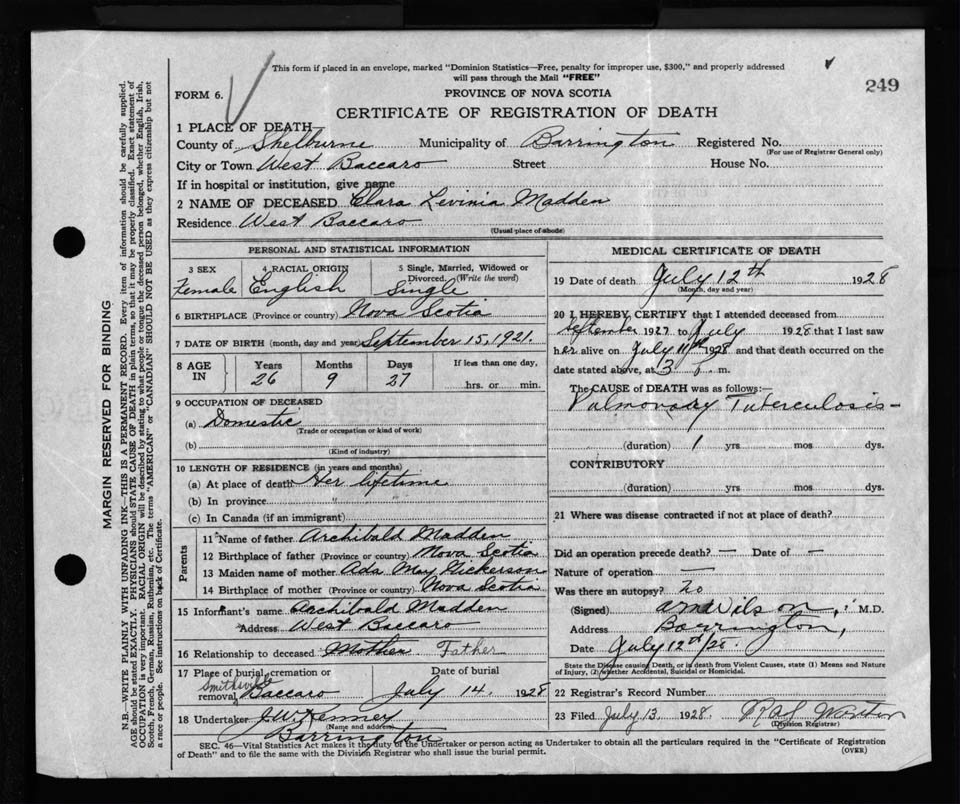 This form if placed in an envelope, marked "Dominion Statistics—Free, penalty for improper use, $300," and properly addressed
will pass through the Mail "FREE"
249
FORM 6.
PROVINCE OF NOVA SCOTIA
CERTIFICATE OF REGISTRATION OF DEATH
1 PLACE OF DEATH—
County of Shelburne Municipality of Barrington Registered No.
(For use of Registrar General only)
City or Town West Baccaro Street House No.
If in hospital or institution, give name
2 NAME OF DECEASED Clara Levinia Madden
Residence West Baccaro
(Usual place of abode)
PERSONAL AND STATISTICAL INFORMATION
3 SEX 4 RACIAL ORIGIN 5 Single, Married, Widowed or
Divorced. (Write the word)
Female English Single
6 BIRTHPLACE (Province or country) Nova Scotia
7 DATE OF BIRTH (month, day and year) September 15, 1921.
8 AGE IN Years Months Days If less than one day,
26 9 27 hrs. or min.
9 OCCUPATION OF DECEASED
(a) Domestic
(Trade or occupation or kind of work)
(b)
(Kind of industry)
10 LENGTH OF RESIDENCE (in years and months)
(a) At place of death Her lifetime
(b) In province "
(c) In Canada (if an immigrant)
Parents
11 Name of father Archibald Madden
12 Birthplace of father (Province or country) Nova Scotia
13 Maiden name of mother Ada May Nickerson
14 Birthplace of mother (Province or country) Nova Scotia
15 Informant's name Archibald Madden
Address West Baccaro
16 Relationship to deceased Mother Father
17 Place of burial, cremation or Date of burial
removal Smithville Baccaro July 14. 1928
18 Undertaker J. W. Kenney
(Name and address)
Barrington
MEDICAL CERTIFICATE OF DEATH
19 Date of death July 12th 1928
(Month, day and year)
20 I HEREBY CERTIFY that I attended deceased from
September 1927 to July 1928 that I last saw
her alive on July 11th 1928 and that death occurred on the
date stated above, at 3 P. m.
The CAUSE of DEATH was as follows:—
Pulmonary Tuberculosis—
(duration) 1 yrs mos dys.
CONTRIBUTORY
(duration) yrs mos dys.
21 Where was disease contracted if not at place of death?
Did an operation precede death? — Date of —
Nature of operation —
Was there an autopsy? no
(Signed) Wilson, M.D.
Address Barrington,
Date July 12th/28.
State the Disease causing Death, or in death from Violent Causes, state (1) Means and Nature
of Injury, (2) whether Accidental, Suicidal or Homicidal.
22 Registrar's Record Number
23 Filed July 13, 1928.
(Division Registrar)
SEC. 46—Vital Statistics Act makes it the duty of the Undertaker or person acting as Undertaker to obtain all the particulars required in the "Certificate of Registration
of Death" and to file the same with the Division Registrar who shall issue the burial permit. (OVER)
MARGIN RESERVED FOR BINDING
N.B.—WRITE PLAINLY WITH UNFADING INK—THIS IS A PERMANENT RECORD. Every item of information should be carefully supplied.
AGE should be stated EXACTLY. PHYSICIANS should STATE CAUSE OF DEATH in plain terms, so that it may be properly classified. Exact statement of
OCCUPATION is very important. RACIAL ORIGIN will be described by stating to what people or tongue the deceased person belonged, whether English, Irish,
Scotch, French, German, Russian, Ruthenian, etc. The terms "AMERICAN" or "CANADIAN" SHOULD NOT BE USED as they express citizenship but not
a race or people. See instructions on back of Certificate.